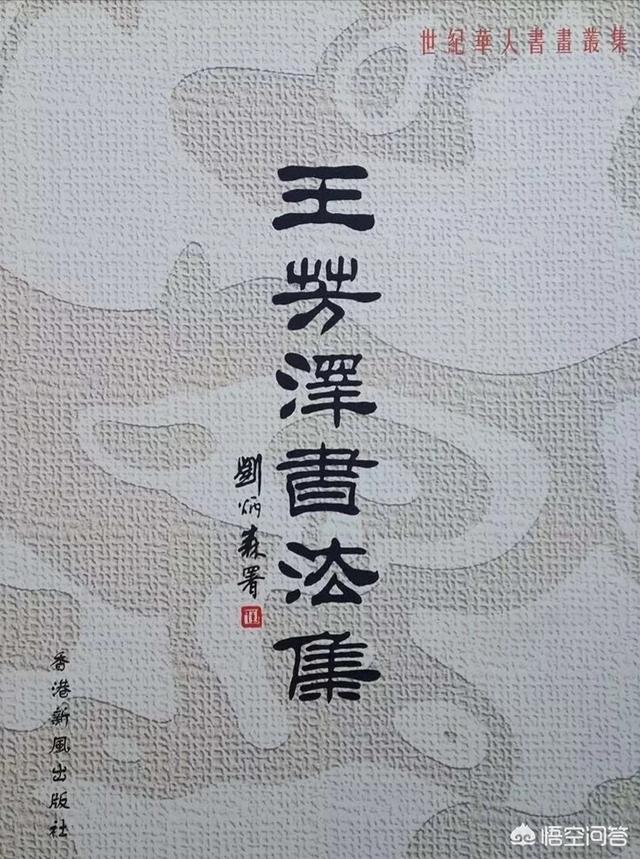 世紀華人書畫叢集
王芳澤書法集
劉炳森署
香港新風出版社
悟空问答